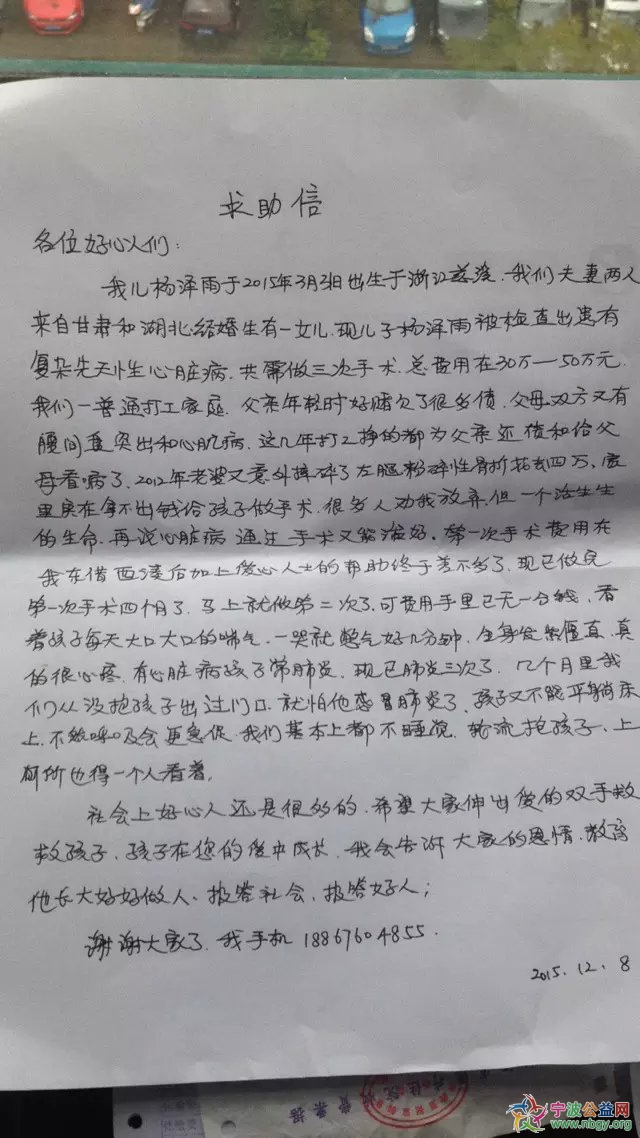 求助信
各位好心人们：
我儿杨泽雨于2015年3月3日出生于浙江慈溪．我们夫妻两人
来自甘肃和湖北结婚生有一女儿．现儿子杨泽雨被检查出患有
复杂先天性心脏病．共需做三次手术．总费用在30万—50万元．
我们一普通打工家庭．父亲年轻时好赌欠了很多债．父母双方又有
腰间盘突出和心肌病．这几年打工挣的都为父亲还债和给父
母看病了．2012年老婆又意外摔碎了左腿粉碎性骨折花去四万．家
里实在拿不出钱给孩子做手术．很多人劝我放弃．但一个活生生
的生命．再说心脏病通过手术又能治好．第一次手术费用在
我东借西凑后加上爱心人士的帮助终于差不多了．现已做完
第一次手术四个月了．马上就做第二次了．可费用手里已无一分钱．看
着孩子每天大口大口的喘气．一哭就憋气好几分钟．全身发紫僵直．真
的很心疼．有心脏病孩子常肺炎．现已肺炎三次了．几个月里我
们从没抱孩子出过门口．就怕他感冒肺炎了．孩子又不能平躺床
上．不然呼吸会更急促．我们基本上都不睡觉．轮流抱孩子．上
厕所也得一个人看着．
社会上好心人还是很多的．希望大家伸出爱的双手救
救孩子．孩子在您的爱中成长．我会告诉大家的恩情．教育
他长大好好做人、报答社会、报答好人；
谢谢大家了．我手机 18867604855．
2015.12.8
宁波公益网
www.nbgy.org